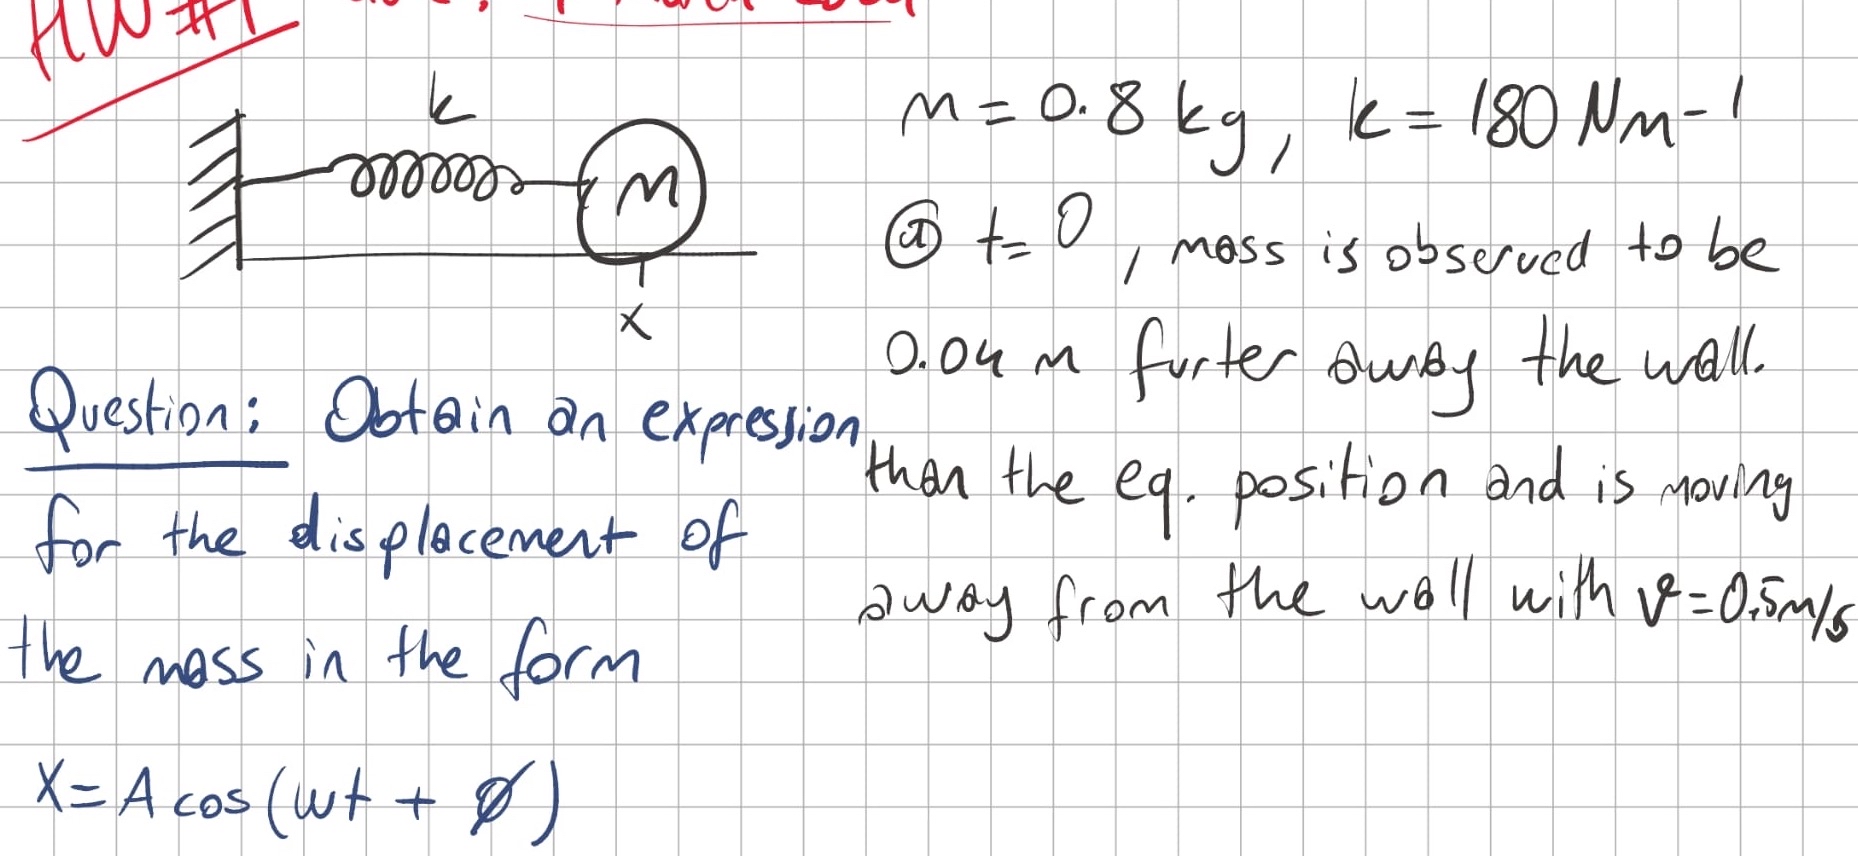 HW #1
k
M
x
m = 0.8 kg, k = 180 Nm-1
@ t= 0, mass is observed to be
0.04 m furter away the wall.
than the eq. position and is moving
away from the wall with v=0,5m/s
Question: Obtain an expression
for the displacement of
the mass in the form
X= A cos (wt + ø)